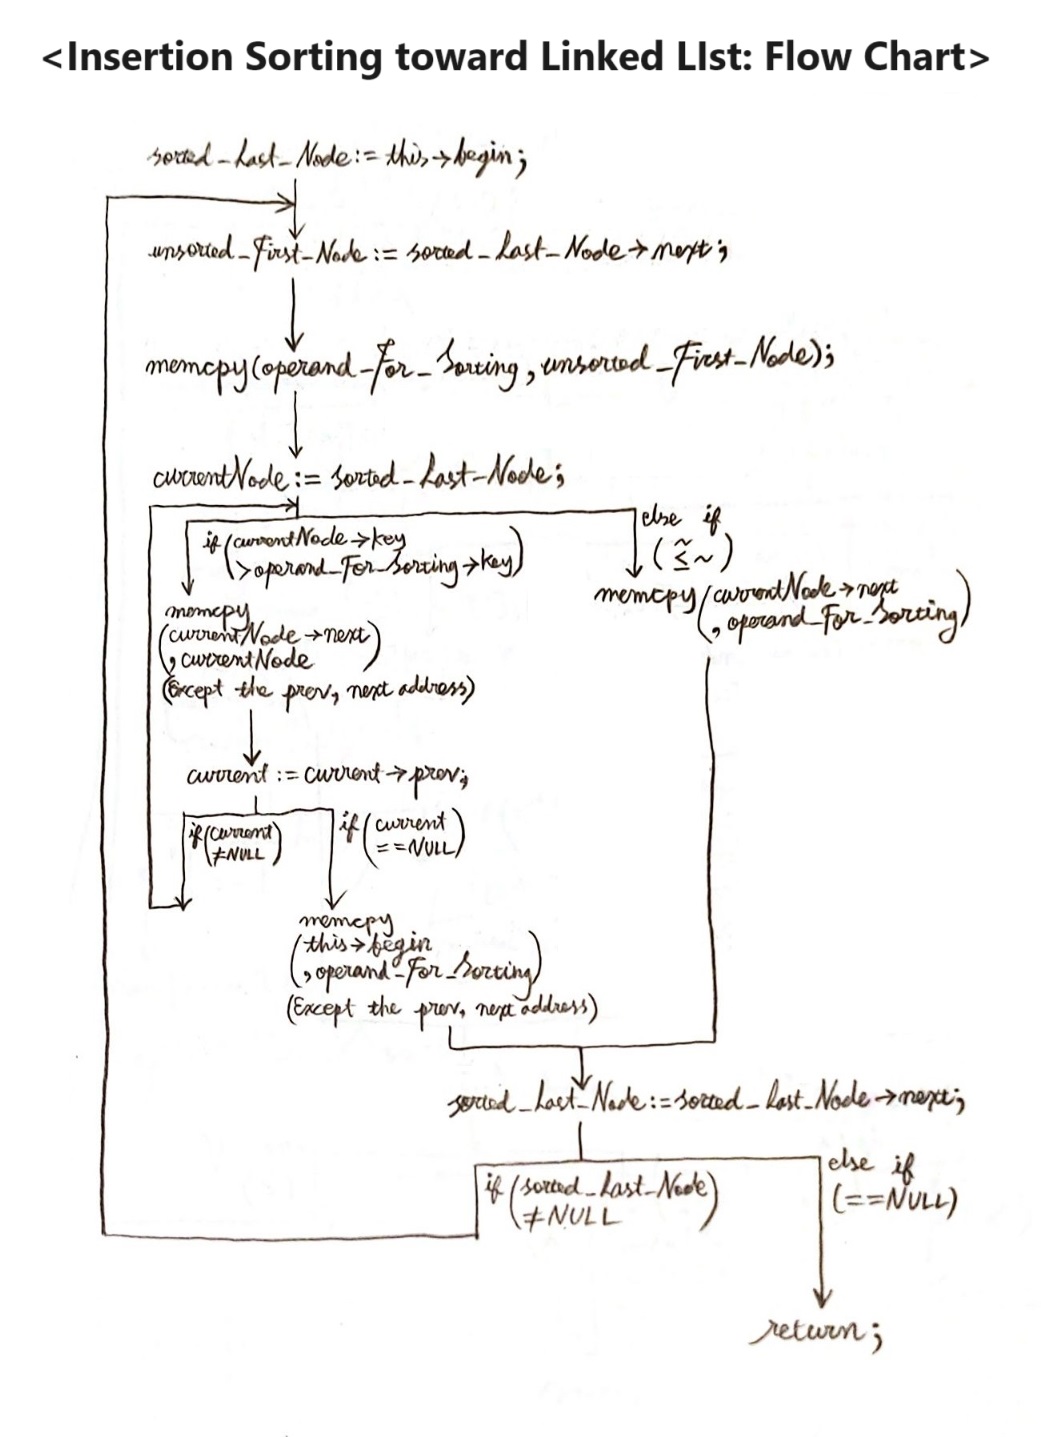 <Insertion Sorting toward Linked LIst: Flow Chart>
sorted_Last_Node:= this→begin;
unsorted_First_Node := sorted_Last_Node→next;
memcpy(operand_For_Sorting, unsorted_First_Node);
currentNode:= sorted_Last_Node;
if (currentNode→key
>operand_For_Sorting→key)
else if
(~≤~)
memcpy(currentNode→next
, operand_For_Sorting)
memcpy
(currentNode→next
, currentNode)
(Except the prev, next address)
current := current→prev;
if (current
≠NULL)
if (current
==NULL)
memcpy
(this→begin
, operand_For_Sorting)
(Except the prev, next address)
sorted_Last_Node:=sorted_Last_Node→next;
if (sorted_Last_Node
≠NULL)
else if
(==NULL)
return;